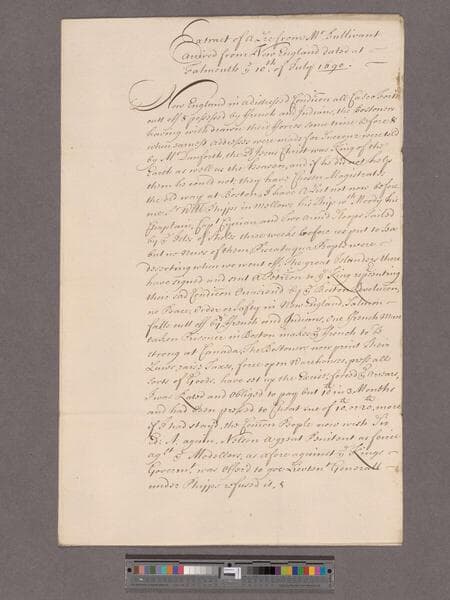 Extract of a Lre from Mr Sullivant
Arrived from New England dated at
Falmouth ye 10th of July 1690.
New England in a distressed Condition all Easter
cutt off & possessed by French and Indians, the Bostoners
having with drawn their fforces some time before &
when earnest adresses were made for Succour were told
by Mr Danforth that Jesus Christ was King of the
Earth as well as the heavens, and if he did not help
them he could not, they have Chosen Magistrates
the old way at Boston, I have a List not now before
me. Sr Wm Phipps in Mellows his Ship wth Moody his
Chaplain, Capt Cyprian and two small Sloops Sailed
by ye Isles of Sholes three weeks before we put to Sea
but no News of them, Piscataqua People were
deserting when we went off, The great Islanders there
have signed and sent a Petition to ye King representing
their sad Condition Occasioned by ye Boston Revolution,
no Peace, Order or safty in New England, Salmon
falls cutt off by French and Indians, One French Man
taken Prisoner in Boston makes ye French to be
strong at Canada, The Bostoners now print their
Laws, raise Taxes, force open Warehouses, press all
sorts of Goods, have set up the Excise,
I was Rated and Obliged to pay but in 3 Months
and had been pressed to more
if I had stayd, the Common People now wish for Sir
Ed: A. again. Nelson a great Penitent as fierce
agst ye Medellers, as afore against ye Kings
Governmt was offered to goe Lievtent Generall
under Phipps refused it, &